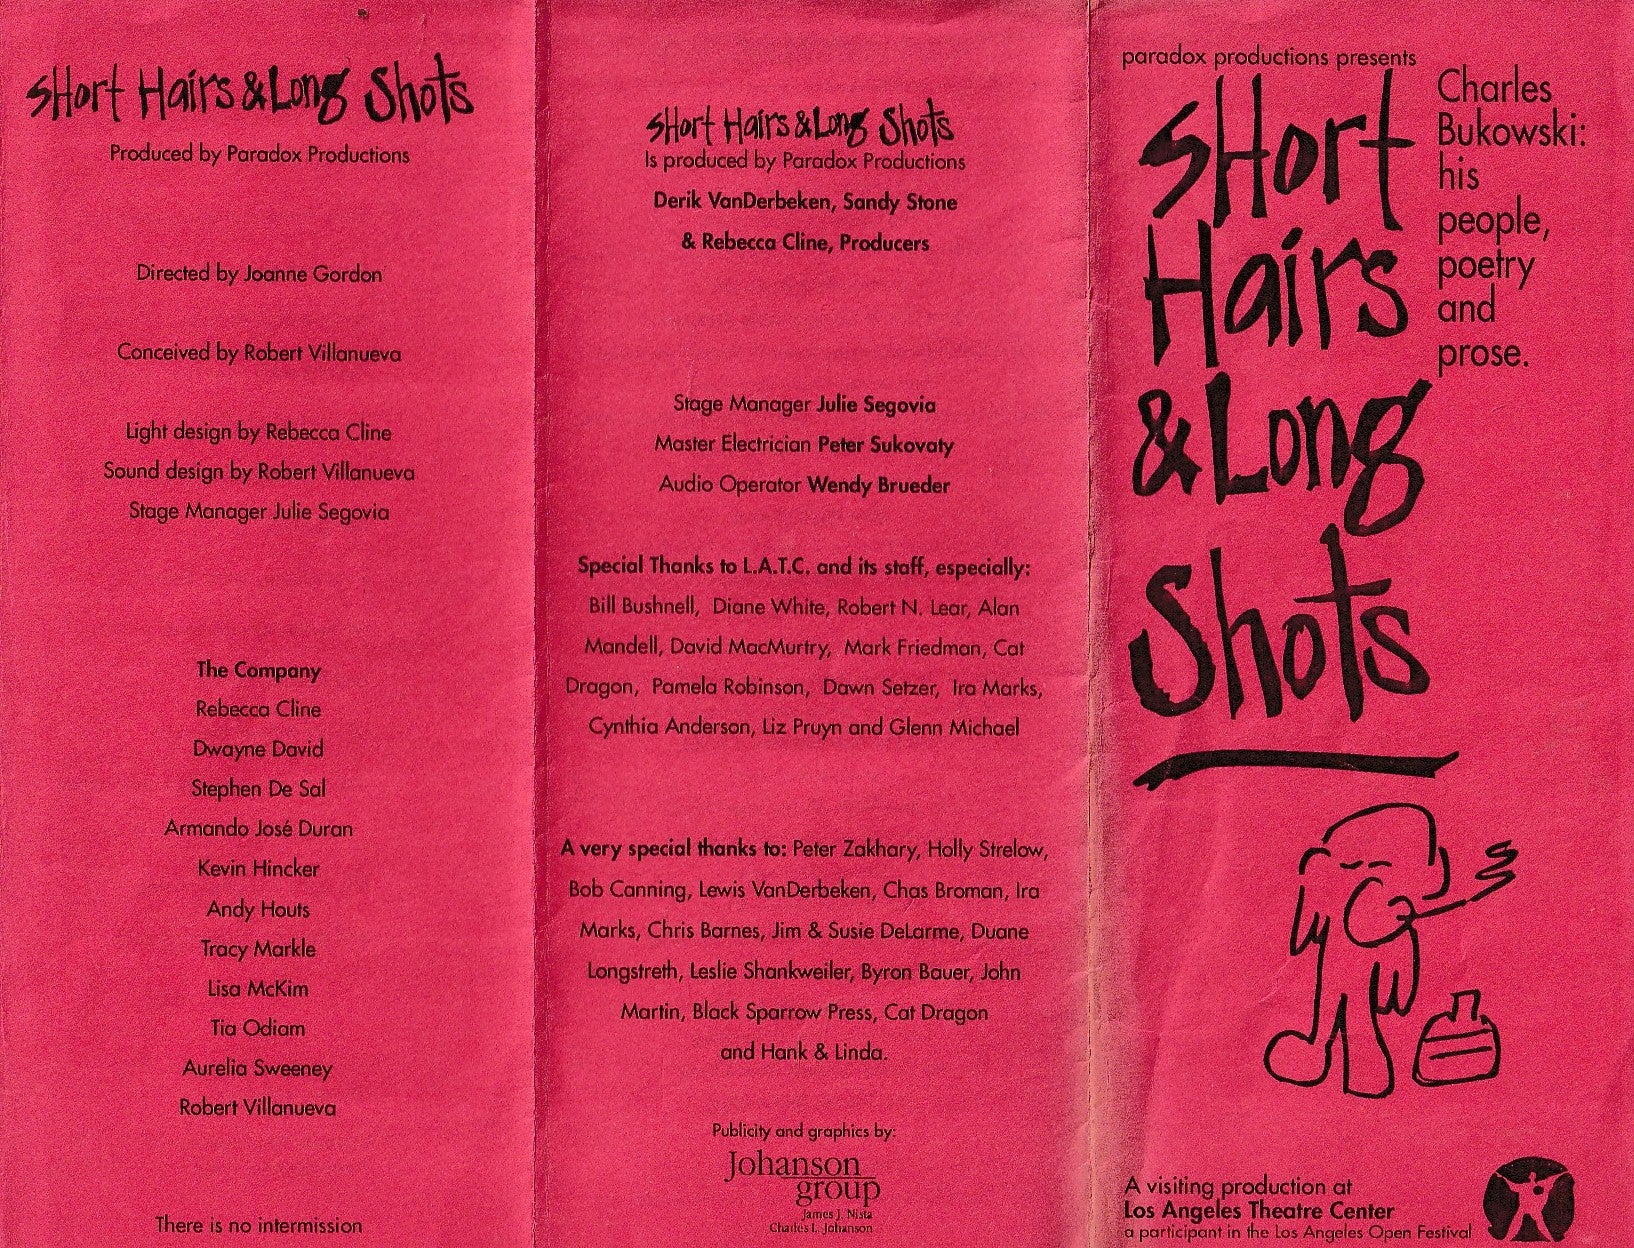 sHort Hairs & Long Shots
Produced by Paradox Productions
Directed by Joanne Gordon
Conceived by Robert Villanueva
Light design by Rebecca Cline
Sound design by Robert Villanueva
Stage Manager Julie Segovia
The Company
Rebecca Cline
Dwayne David
Stephen De Sal
Armando José Duran
Kevin Hincker
Andy Houts
Tracy Markle
Lisa McKim
Tia Odiam
Aurelia Sweeney
Robert Villanueva
There is no intermission
sHort Hairs & Long Shots
Is produced by Paradox Productions
Derik VanDerbeken, Sandy Stone
& Rebecca Cline, Producers
Stage Manager Julie Segovia
Master Electrician Peter Sukovaty
Audio Operator Wendy Brueder
Special Thanks to L.A.T.C. and its staff, especially:
Bill Bushnell, Diane White, Robert N. Lear, Alan
Mandell, David MacMurtry, Mark Friedman, Cat
Dragon, Pamela Robinson, Dawn Setzer, Ira Marks,
Cynthia Anderson, Liz Pruyn and Glenn Michael
A very special thanks to: Peter Zakhary, Holly Strelow,
Bob Canning, Lewis VanDerbeken, Chas Broman, Ira
Marks, Chris Barnes, Jim & Susie DeLarme, Duane
Longstreth, Leslie Shankweiler, Byron Bauer, John
Martin, Black Sparrow Press, Cat Dragon
and Hank & Linda.
Publicity and graphics by:
Johanson
group
James J. Nista
Charles L. Johanson
paradox productions presents
sHort
Hairs
& Long
Shots
Charles
Bukowski:
his
people,
poetry
and
prose.
A visiting production at
Los Angeles Theatre Center
a participant in the Los Angeles Open Festival